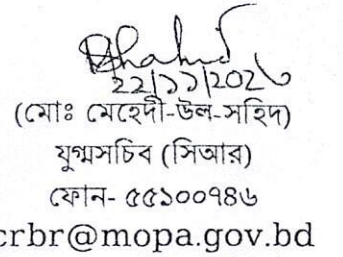 ২২/১১/২০২৬
(মোঃ মেহেদী-উল-সহিদ)
যুগ্মসচিব (সিআর)
ফোন- ৫৫১০০৭৪৬
crbr@mopa.gov.bd